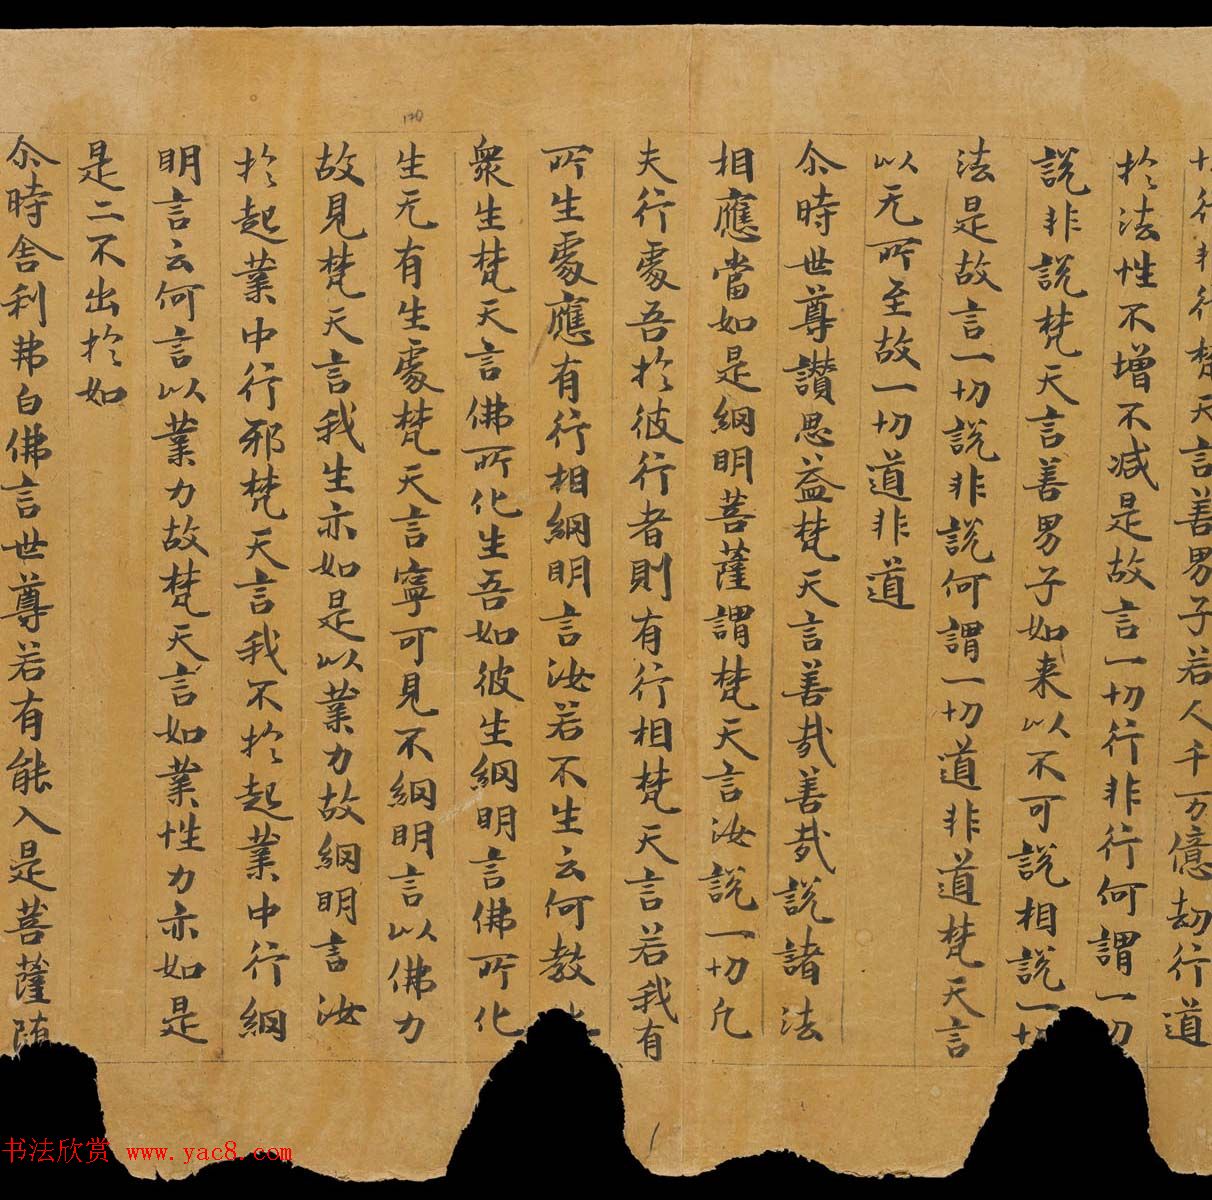 行非行梵天言善男子若人千万億劫行道
於法性不增不减是故言一切行非行何謂一切
說非說梵天言善男子如来以不可說相說一切
法是故言一切說非說何謂一切道非道梵天言
以无所至故一切道非道
尒時世尊讚思益梵天言善哉善哉說諸法
相應當如是網明菩薩謂梵天言汝說一切凡
夫行處吾於彼行者則有行相梵天言若我有
所生處應有行相網明言汝若不生云何教化
衆生梵天言佛所化生吾如彼生網明言佛所化
生无有生處梵天言寧可見不網明言以佛力
故見梵天言我生亦如是以業力故網明言汝
於起業中行邪梵天言我不於起業中行網
明言云何言以業力故梵天言如業性力亦如是
是二不出於如
尒時舍利弗白佛言世尊若有能入是菩薩随
170
书法欣赏 www.yac8.com